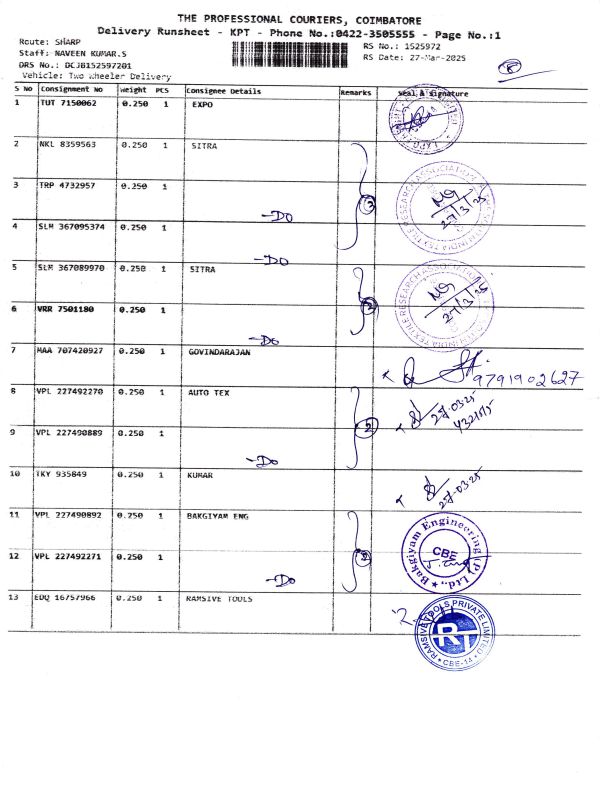 THE PROFESSIONAL COURIERS, COIMBATORE
Delivery Runsheet - KPT - Phone No.:0422-3505555 - Page No.:1
Route: SHARP
RS No.: 1525972
Staff: NAVEEN KUMAR.S
RS Date: 27-Mar-2025
DRS No.: DCJB152597201
Vehicle: Two Wheeler Delivery
S No Consignment No Weight PCS Consignee Details Remarks Seal & Signature
1 TUT 7150062 0.250 1 EXPO
2 NKL 8359563 0.250 1 SITRA
3 TRP 4732957 0.250 1
-DO
3
27/3/25
4 SLM 367095374 0.250 1
-DO
5 SLM 367089970 0.250 1 SITRA
2
27/3/25
6 VRR 7501180 0.250 1
-DO
7 MAA 707420927 0.250 1 GOVINDARAJAN
9791902627
8 VPL 227492270 0.250 1 AUTO TEX
27-03-25
2
9 VPL 227490889 0.250 1
-DO
10 TKY 935849 0.250 1 KUMAR
27-03-25
11 VPL 227490892 0.250 1 BAKGIYAM ENG
Bakgiyam Engineering (P) Ltd.,
CBE
2
12 VPL 227492271 0.250 1
-DO
13 EDQ 16757966 0.250 1 RAMSIVE TOOLS
RAMSIVE TOOLS PRIVATE LIMITED
RT
CBE-14